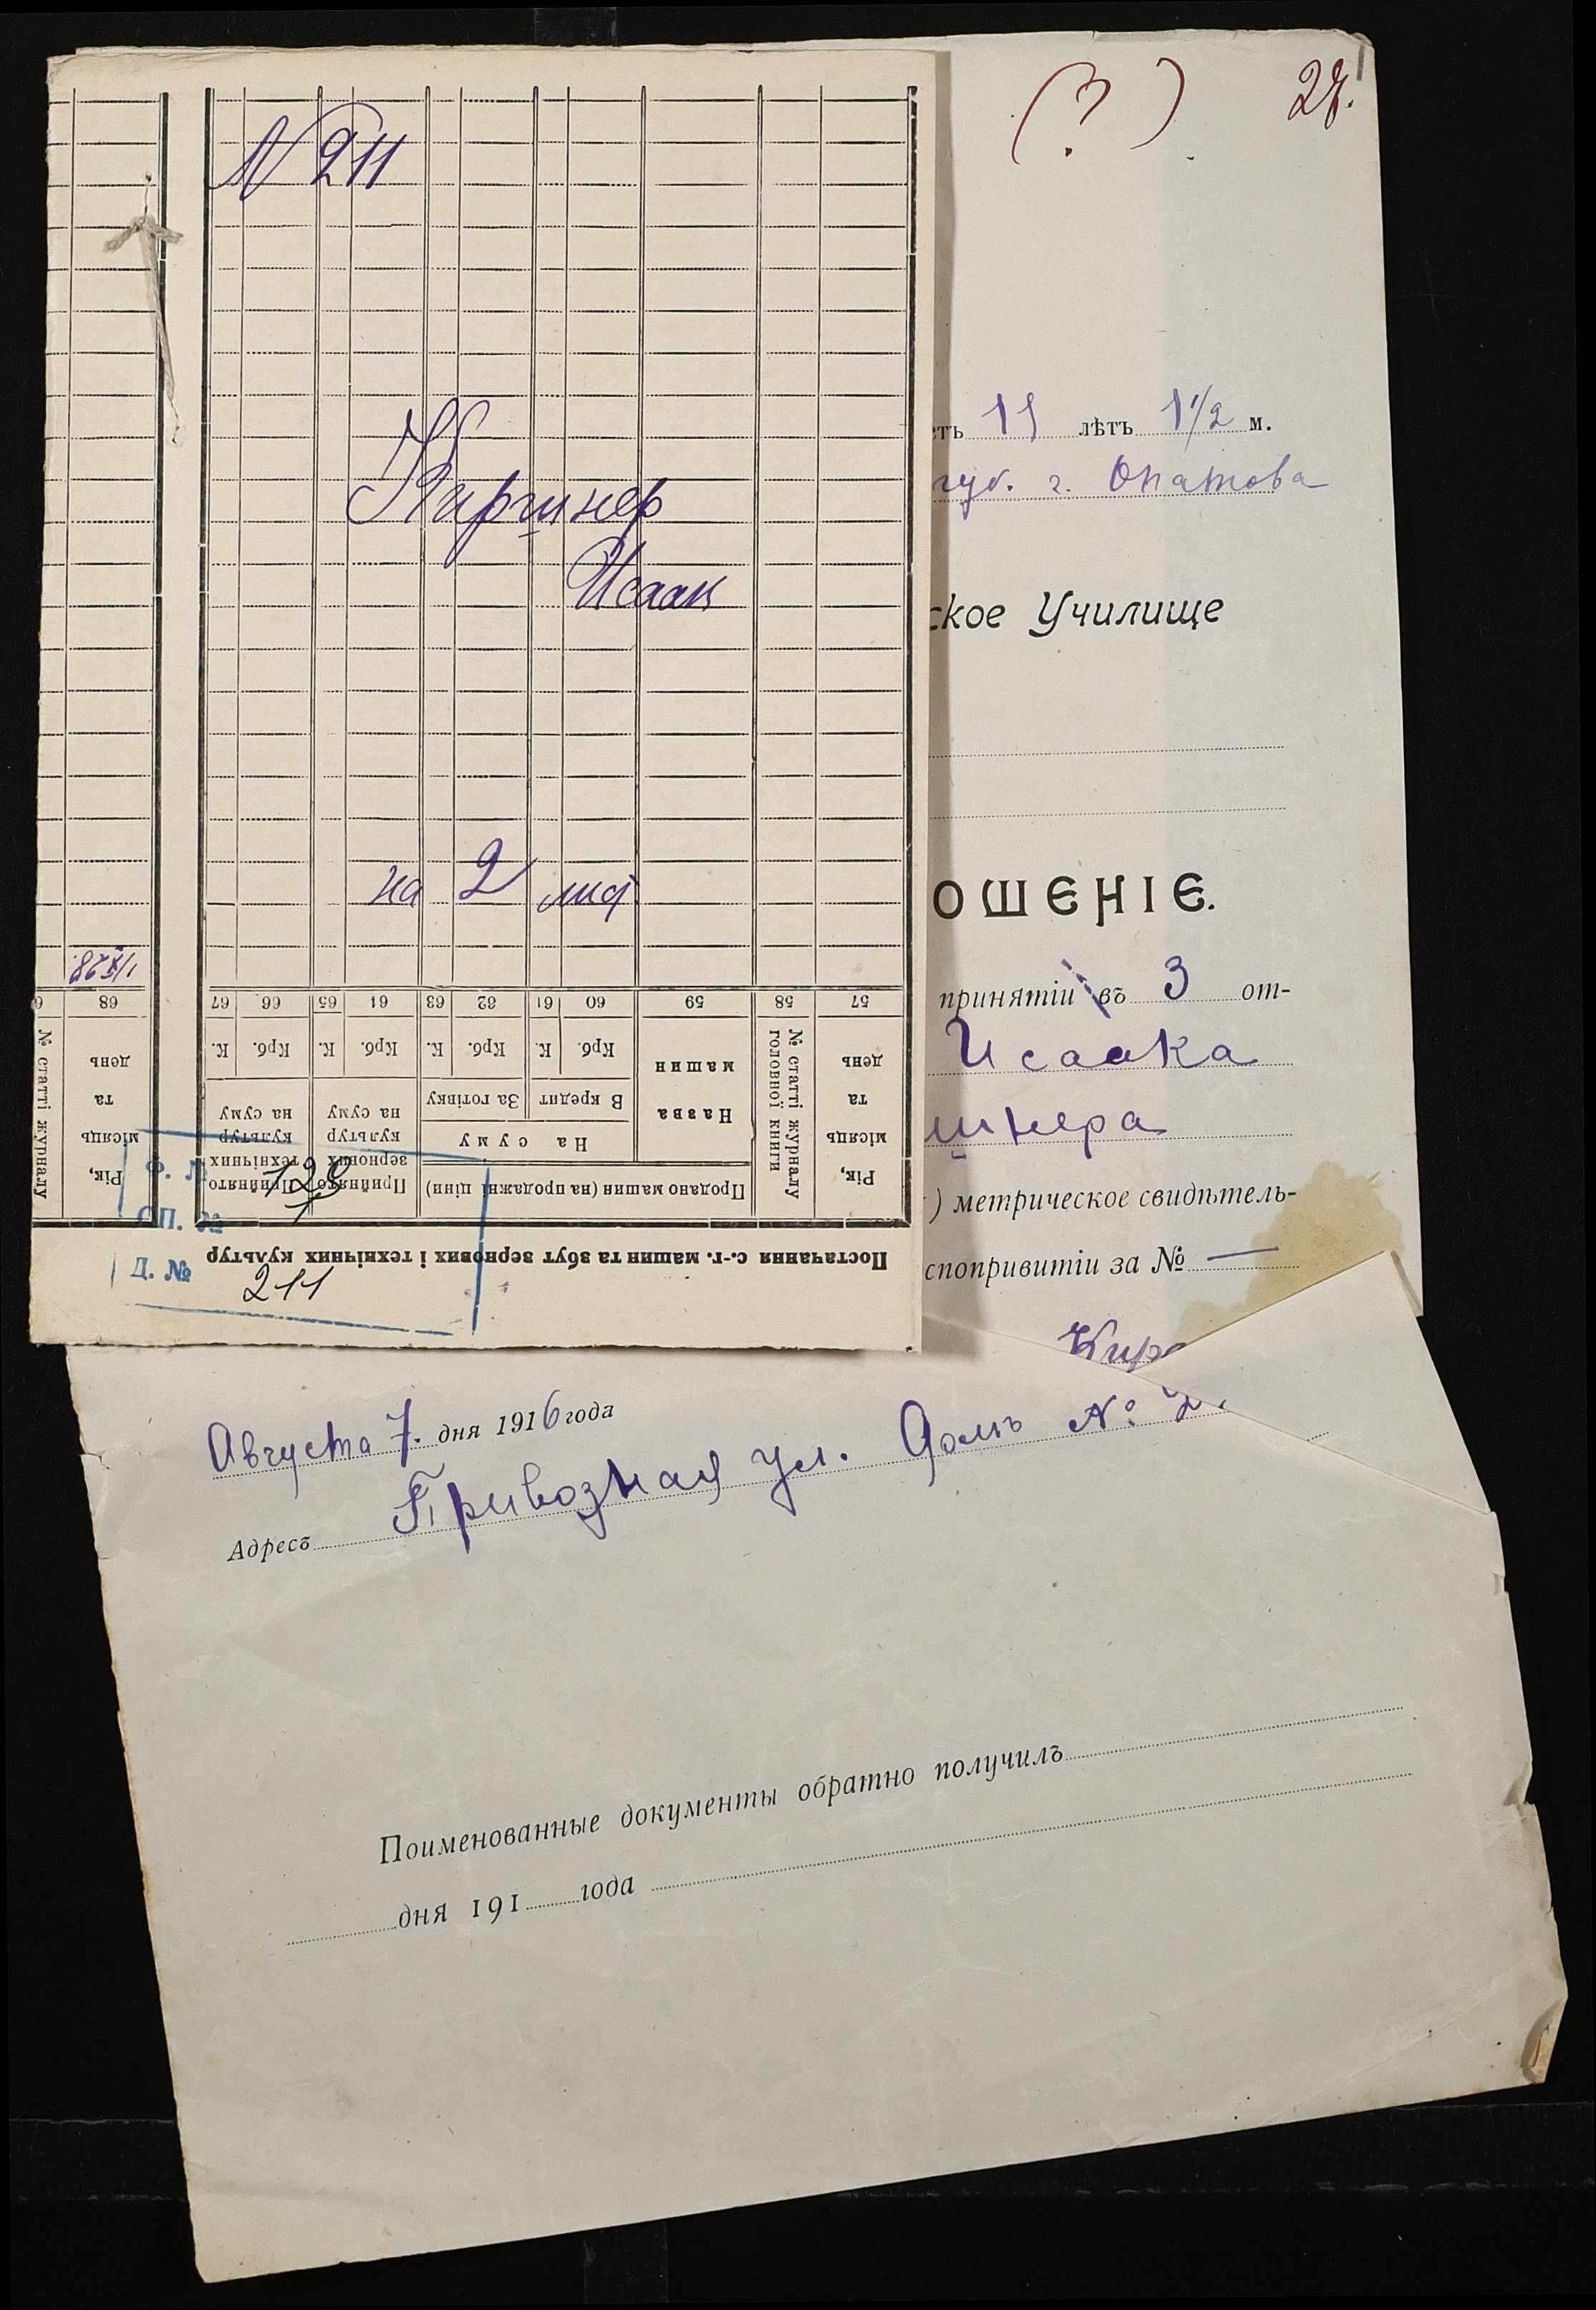 N 211
Киршнер
Исаак
на 2 лис
1/X 28
67 66 65 64 63 62 61 60 59 58 57
68
К. Крб. К. Крб. К. Крб. К. Крб.
За готівку
В кредит
На суму
Назва машин
№ статті журналу головної книги
Рік, місяць та день
Рік, місяць та день
№ статті журналу
Прийнято технічних культур на суму
Прийнято зернових культур на суму
Продано машин (на продажні ціни)
Постачання с.-г. машин та збут зернових і технічних культур
Ф. №
129
ОП. №
Д. № 211
(?) 27.
ть 11 лѣтъ 1 1/2 м.
губ. г. Опатова
ское Училище
ОШЕНІЕ.
принятіи въ 3 от-
Исаака
шнера
) метрическое свидѣтель-
спопривитіи за № —
Кир
Августа 7. дня 1916 года
Адресъ Привозная ул. Домъ № 2
Поименованные документы обратно получилъ
дня 191 года